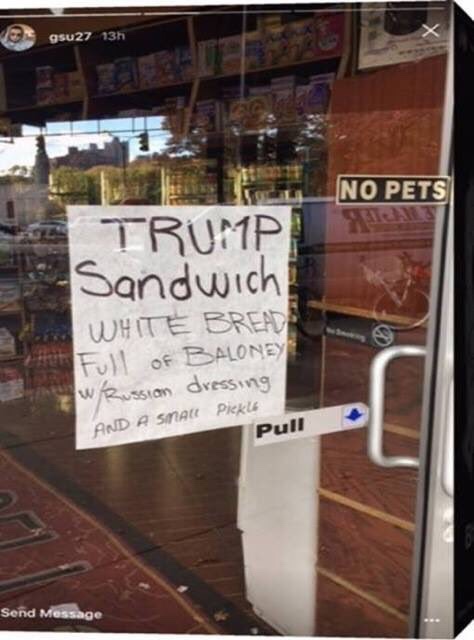 gsu27 13h
NO PETS
TRUMP
Sandwich
WHITE BREAD
Full OF BALONEY
w/Russian dressing
AND A SMALL PICKLE
No Smoking
Pull
Send Message